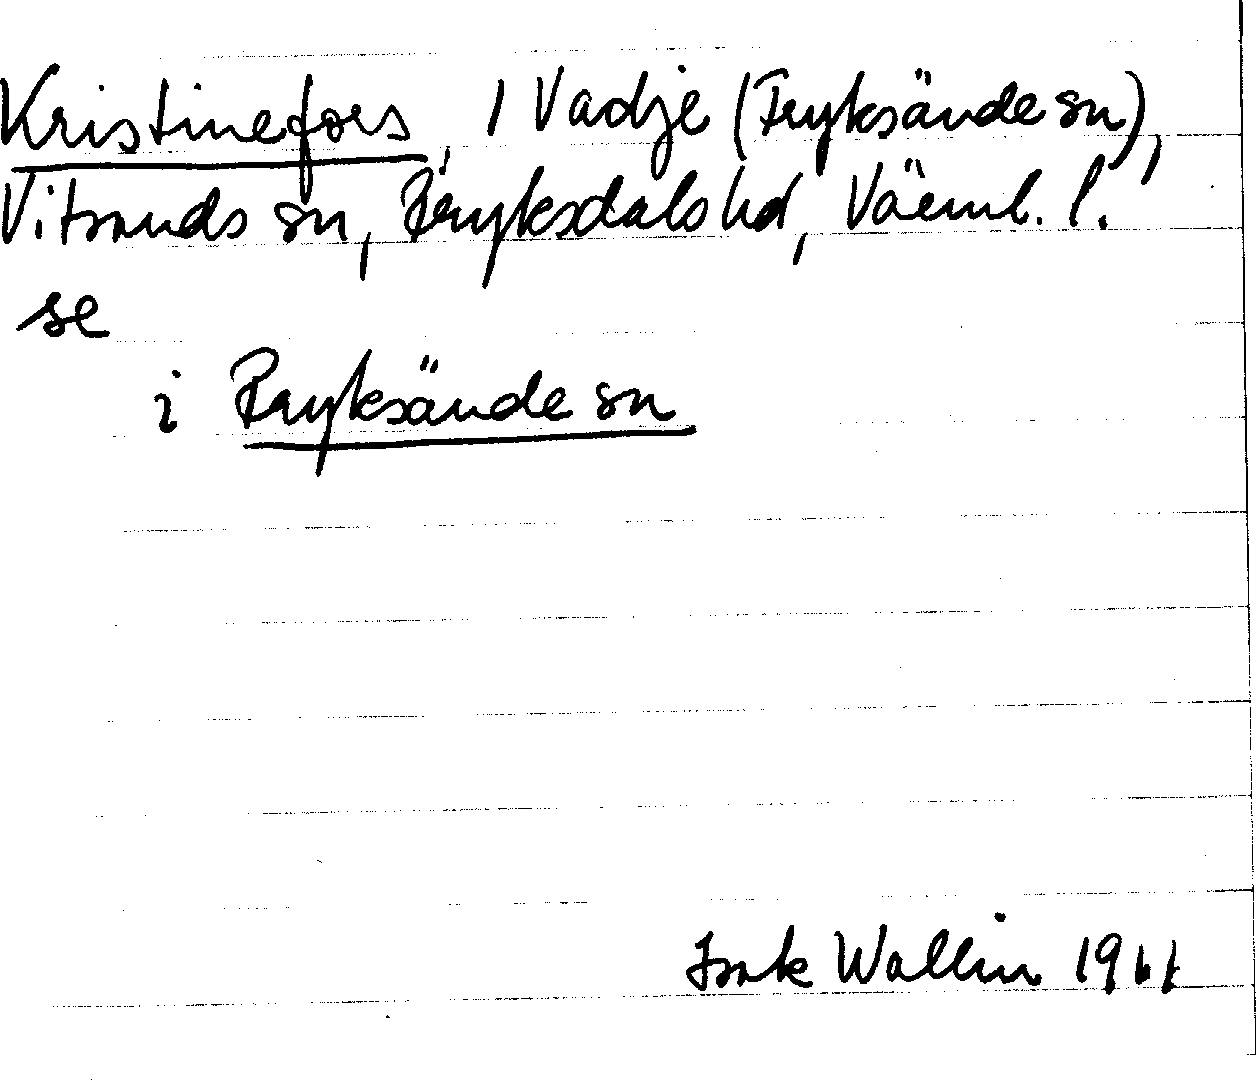 Kristinefors, / Vadje (Fryksände sn),
Vitsands sn, Fryksdals hd, Värml. l.
se
i Fryksände sn
Isak Wallin